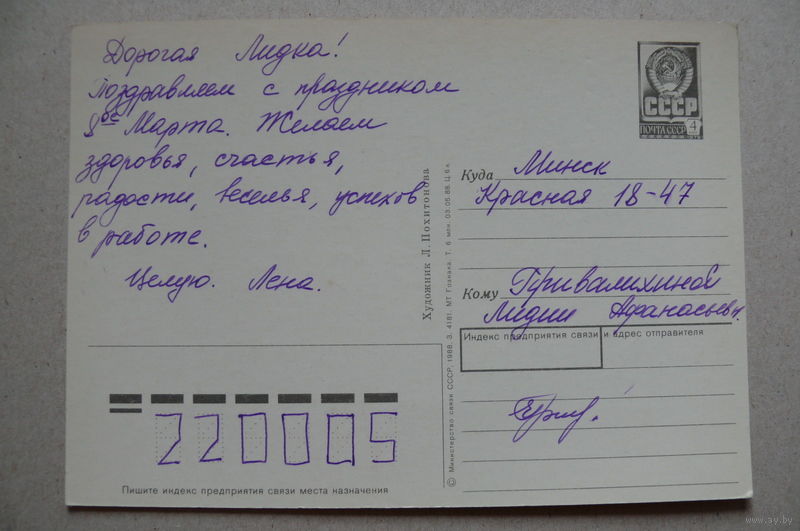 Дорогая Лидка!
Поздравляем с праздником
8ое Марта. Желаем
здоровья, счастья,
радости, веселья, успехов
в работе.
Целую. Лена.
Художник Л. Похитонова
© Министерство связи СССР, 1988. З. 4181. МТ Гознака. Т. 6 млн. 03.05.88. Ц. 6 к.
СССР
ПОЧТА СССР 4
Куда Минск
Красная 18-47
Кому Привалихиной
Лидии Афанасьевн.
Индекс предприятия связи и адрес отправителя
220005
Пишите индекс предприятия связи места назначения
www.ay.by